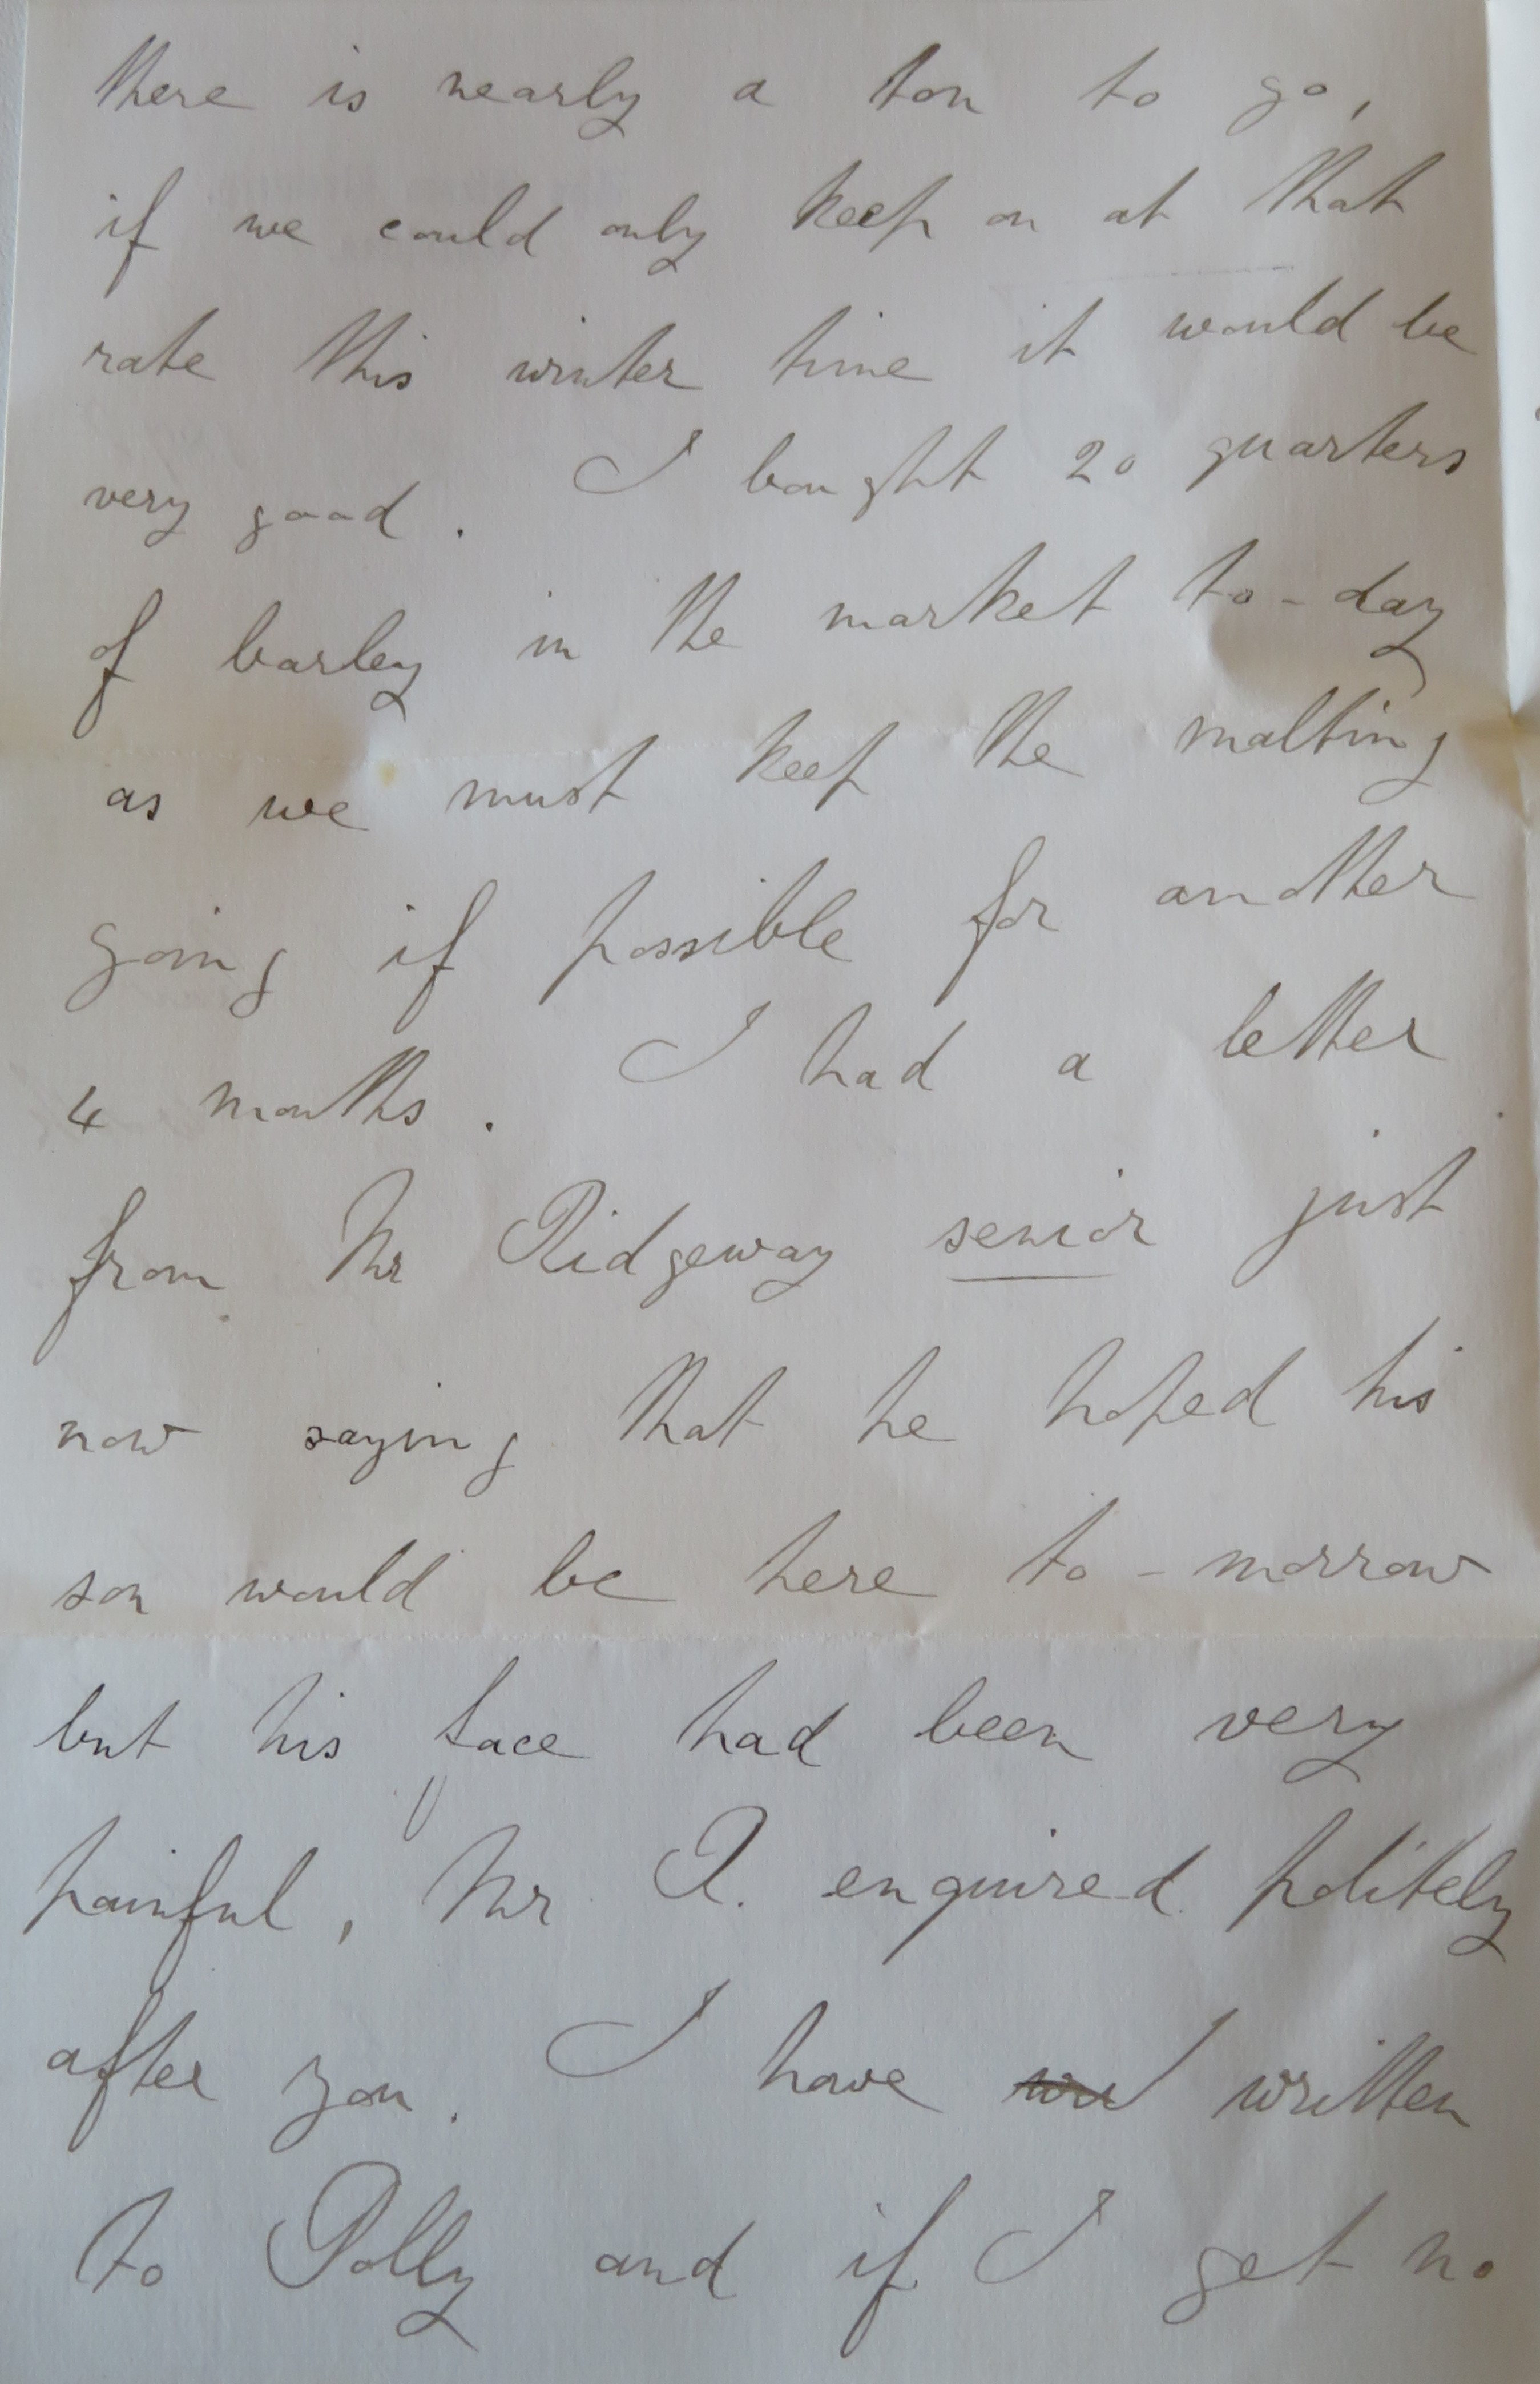 there is nearly a ton to go,
if we could only keep on at that
rate this winter time it would be
very good. I bought 20 quarters
of barley in the market to-day
as we must keep the malting
going if possible for another
4 months. I had a letter
from Mr Ridgeway senior just
now saying that he hoped his
son would be here to-morrow
but his face had been very
painful, Mr R. enquired politely
after you. I have written
to Polly and if I get no